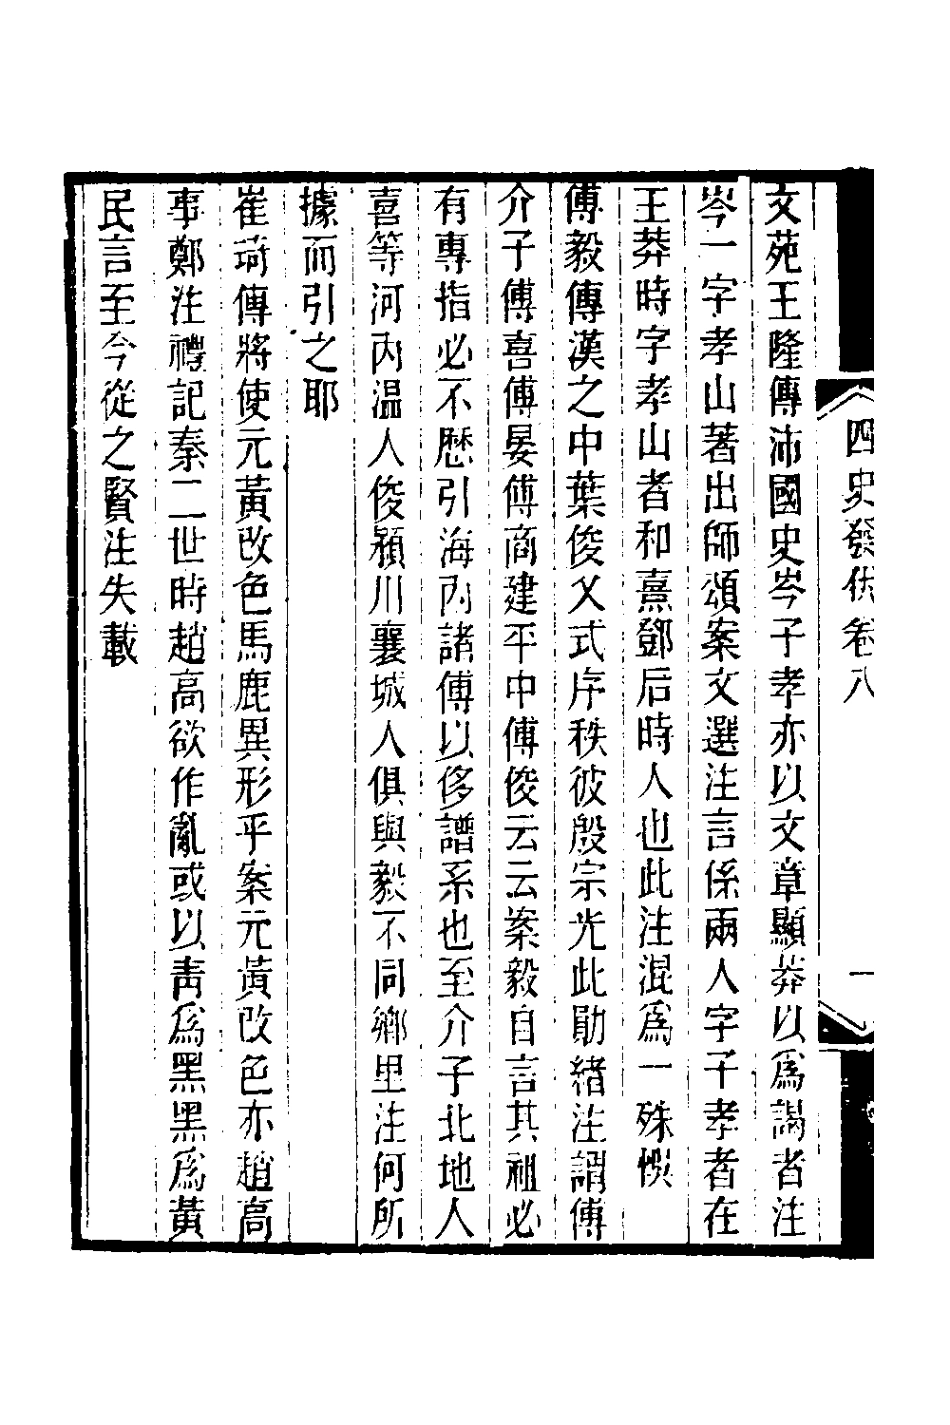 四史發伏卷八
一
文苑王隆傳沛國史岑子孝亦以文章顯莽以爲謁者注
岑一字孝山著出師頌案文選注言係兩人字子孝者在
王莽時字孝山者和熹鄧后時人也此注混爲一殊悞
傅毅傳漢之中葉俊乂式序秩彼殷宗光此勛緒注謂傅
介子傅喜傅晏傅商建平中傅俊云云案毅自言其祖必
有專指必不歷引海內諸傅以侈譜系也至介子北地人
喜等河內温人俊潁川襄城人俱與毅不同鄉里注何所
據而引之耶
崔琦傳將使元黃改色馬鹿異形乎案元黃改色亦趙高
事鄭注禮記秦二世時趙高欲作亂或以青爲黑黑爲黃
民言至今從之賢注失載